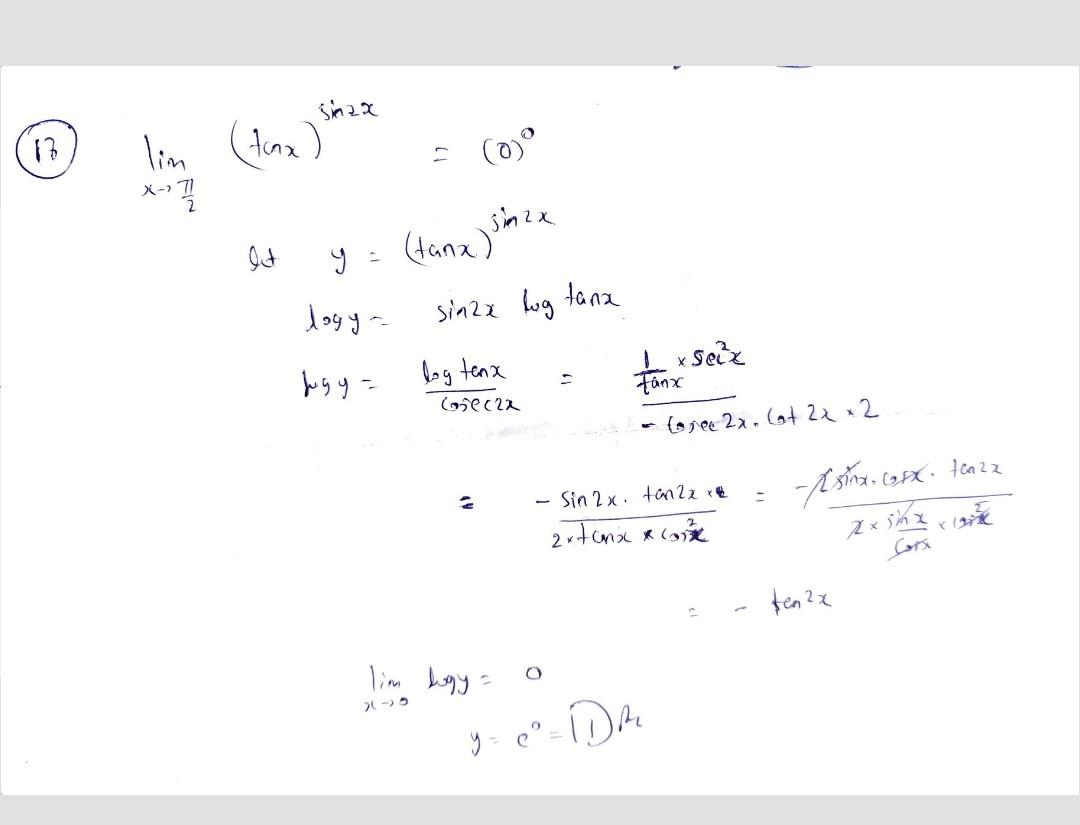 13 lim x→π/2 (tanx)^sin2x = (0)^0
let y = (tanx)^sin2x
logy = sin2x log tanx
logy = log tanx / cosec2x = (1/tanx × sec²x) / (- cosec2x. cot 2x × 2)
= - sin2x. tan2x / (2 × tanx × cos²x) = -2sinx.cosx. tan2x / (2 × sinx/cosx × cos²x)
= - tan2x
lim x→0 logy = 0
y = e^0 = 1